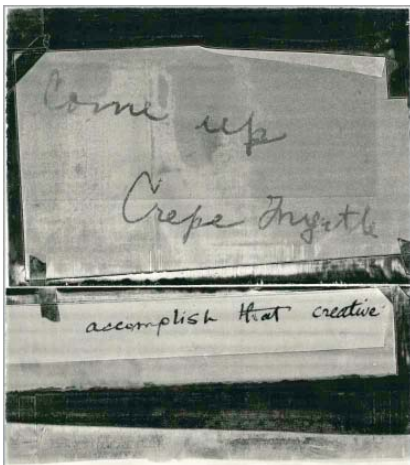 Come up
Crepe Myrtle
accomplish that creative